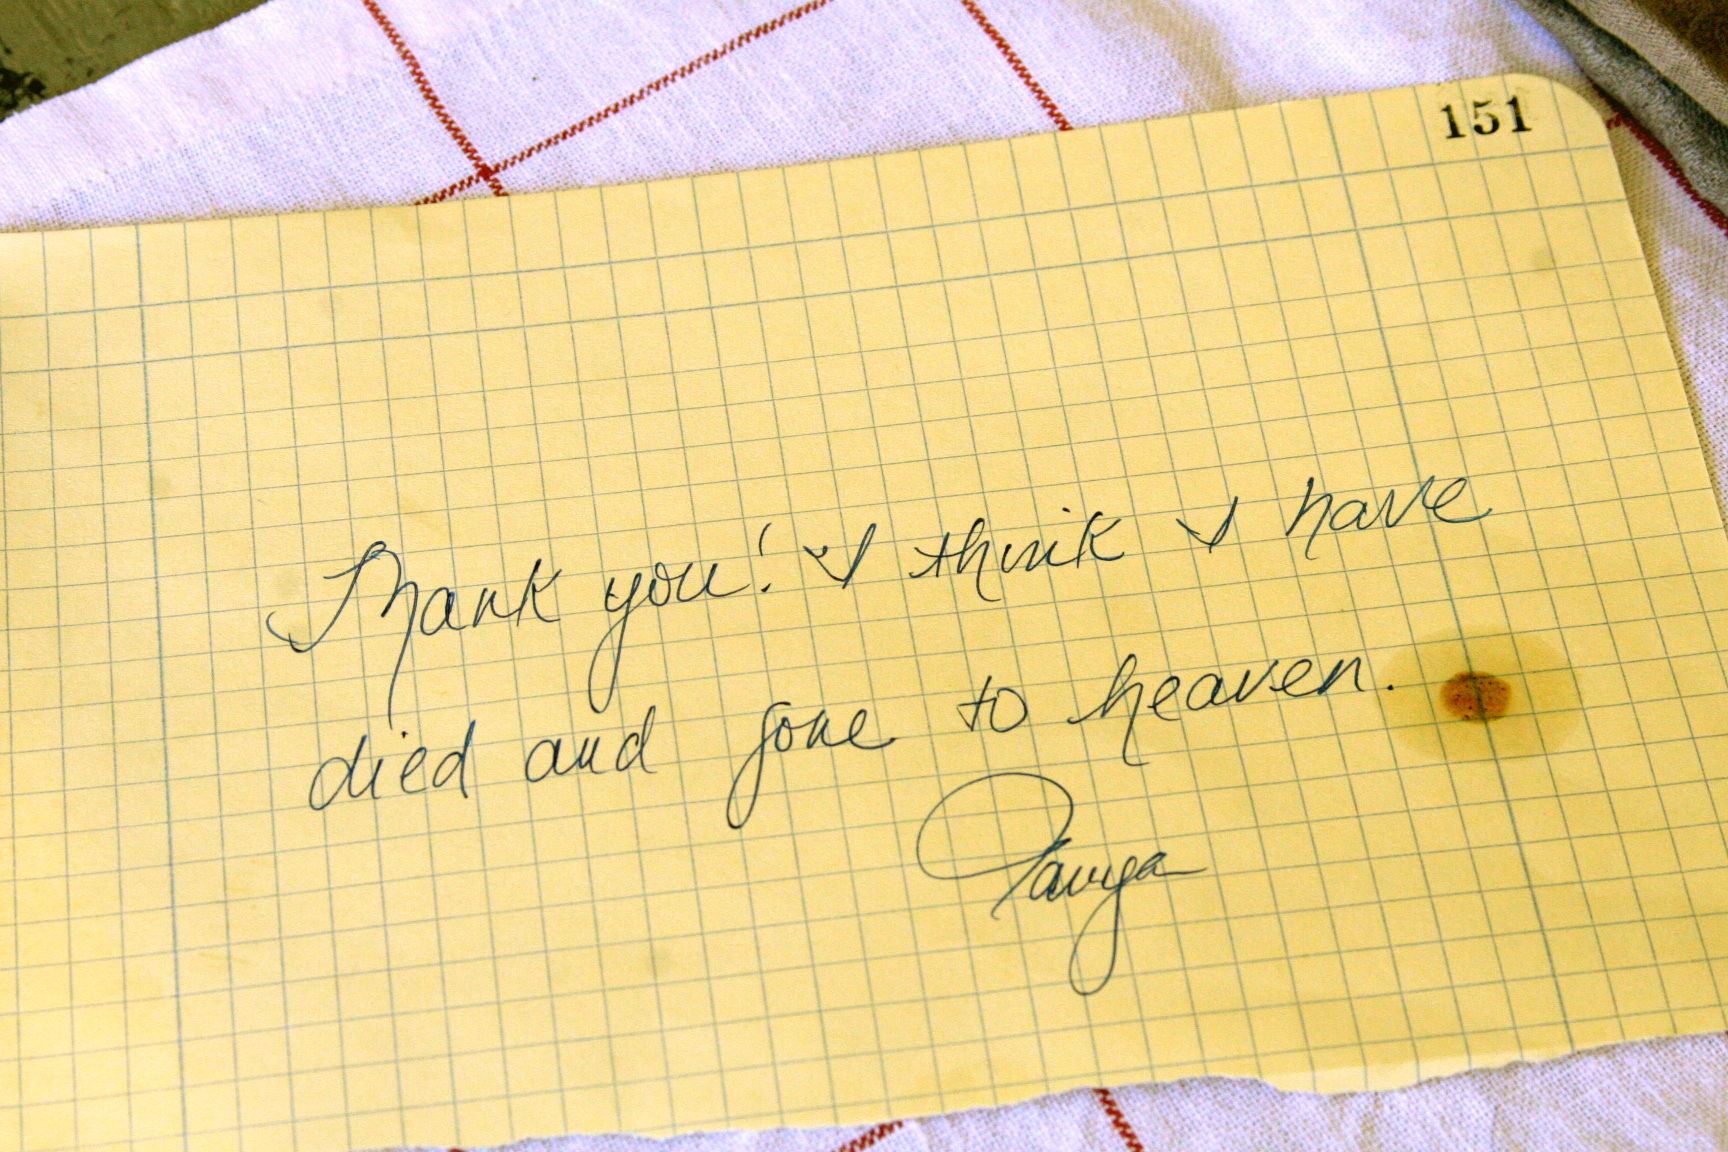 151
Thank you! I think I have
died and gone to heaven.
Tanya